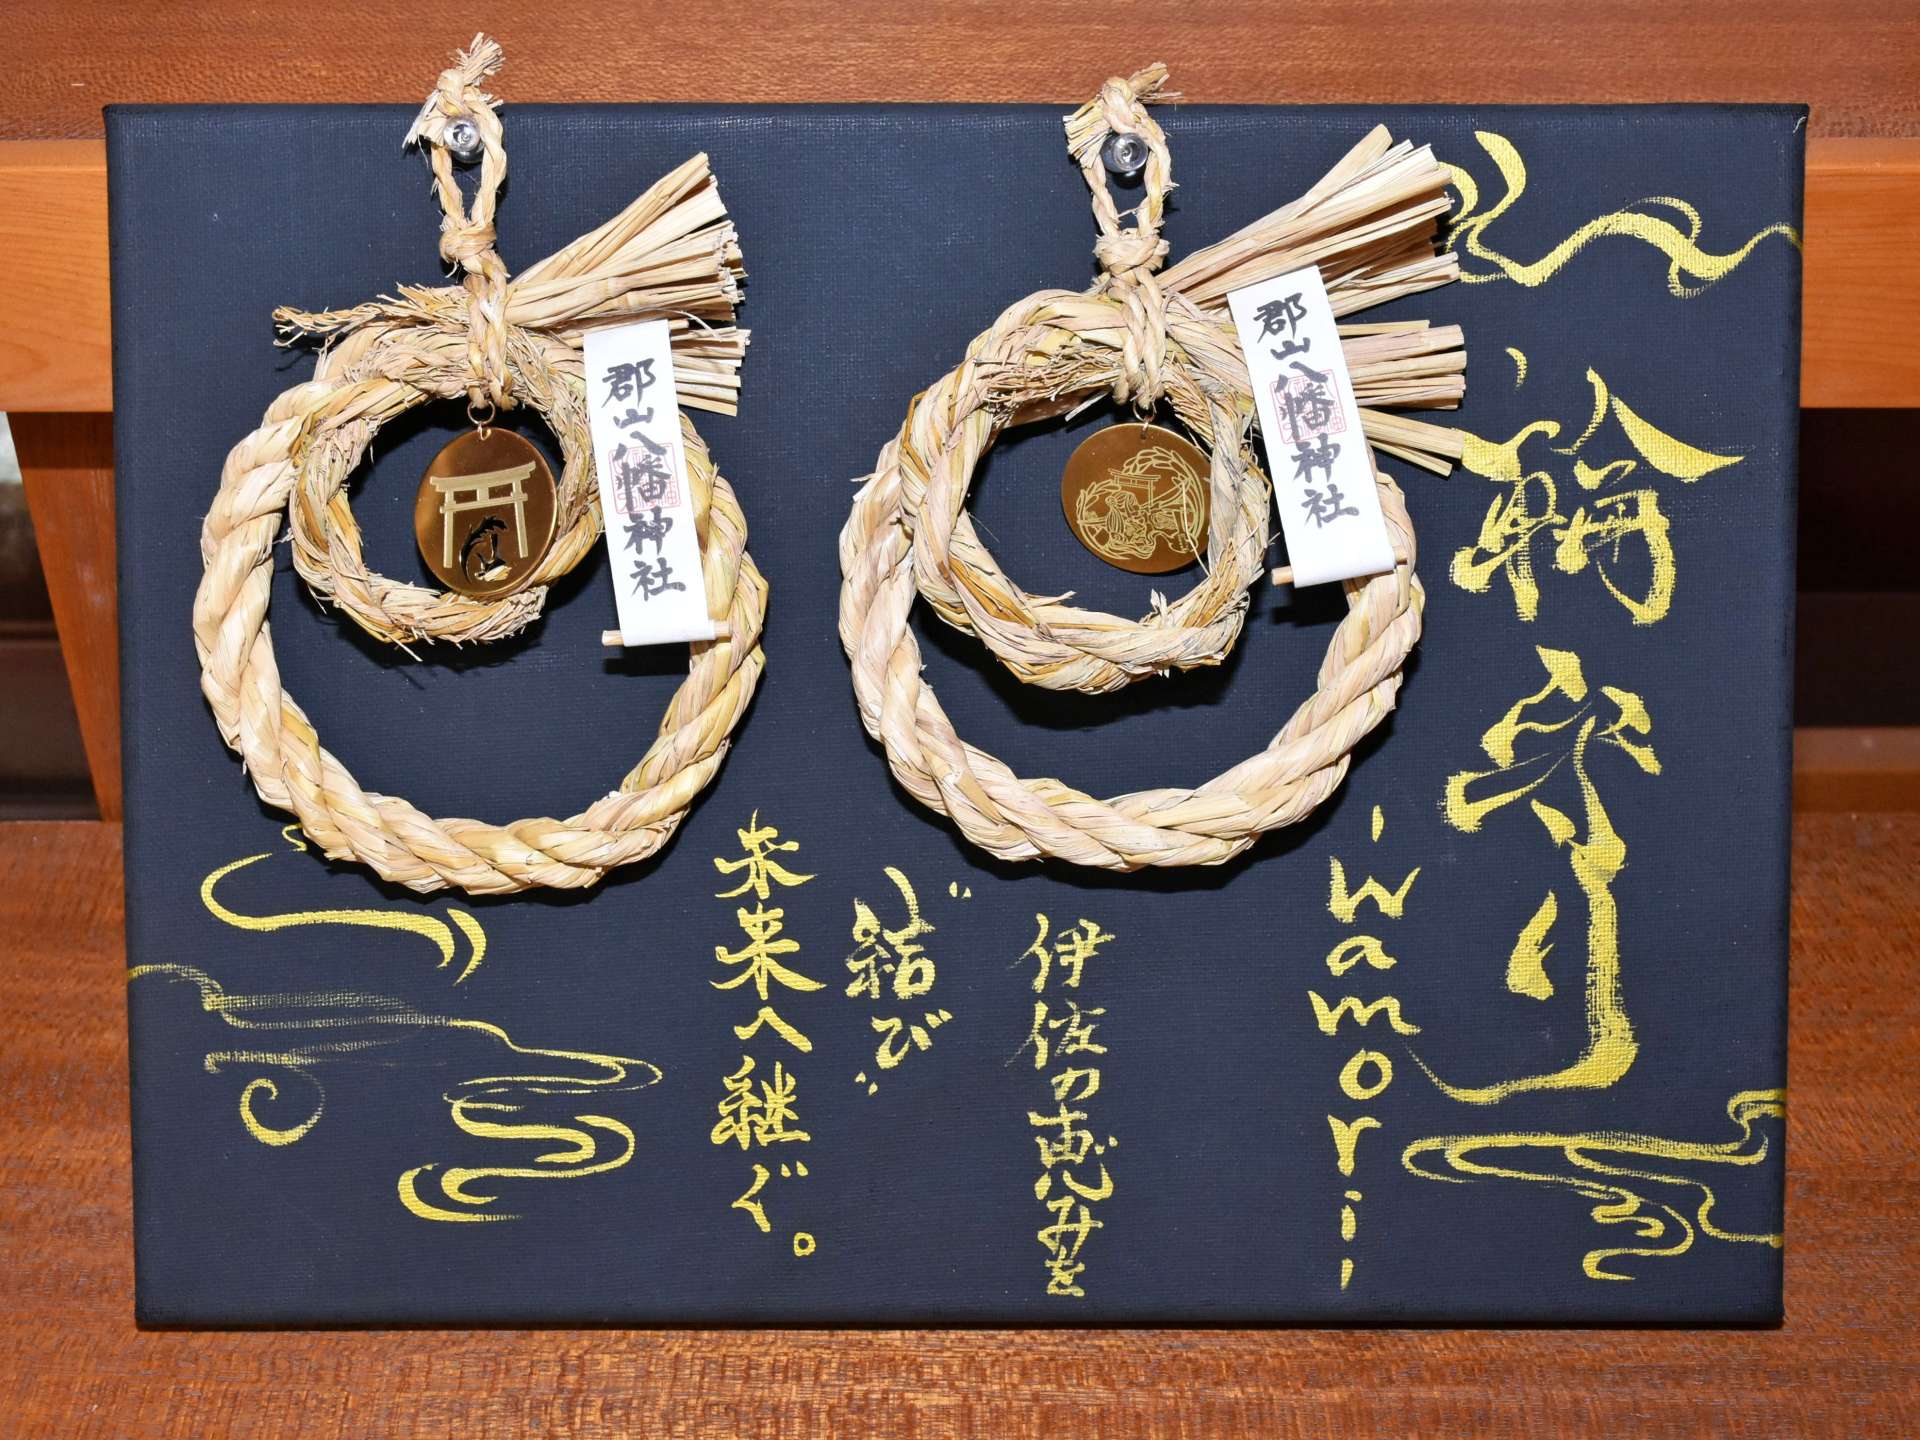 輪守り
-wamori-
伊佐の恵みを
"結び"
未来へ継ぐ。
郡山八幡神社
郡山八幡神社